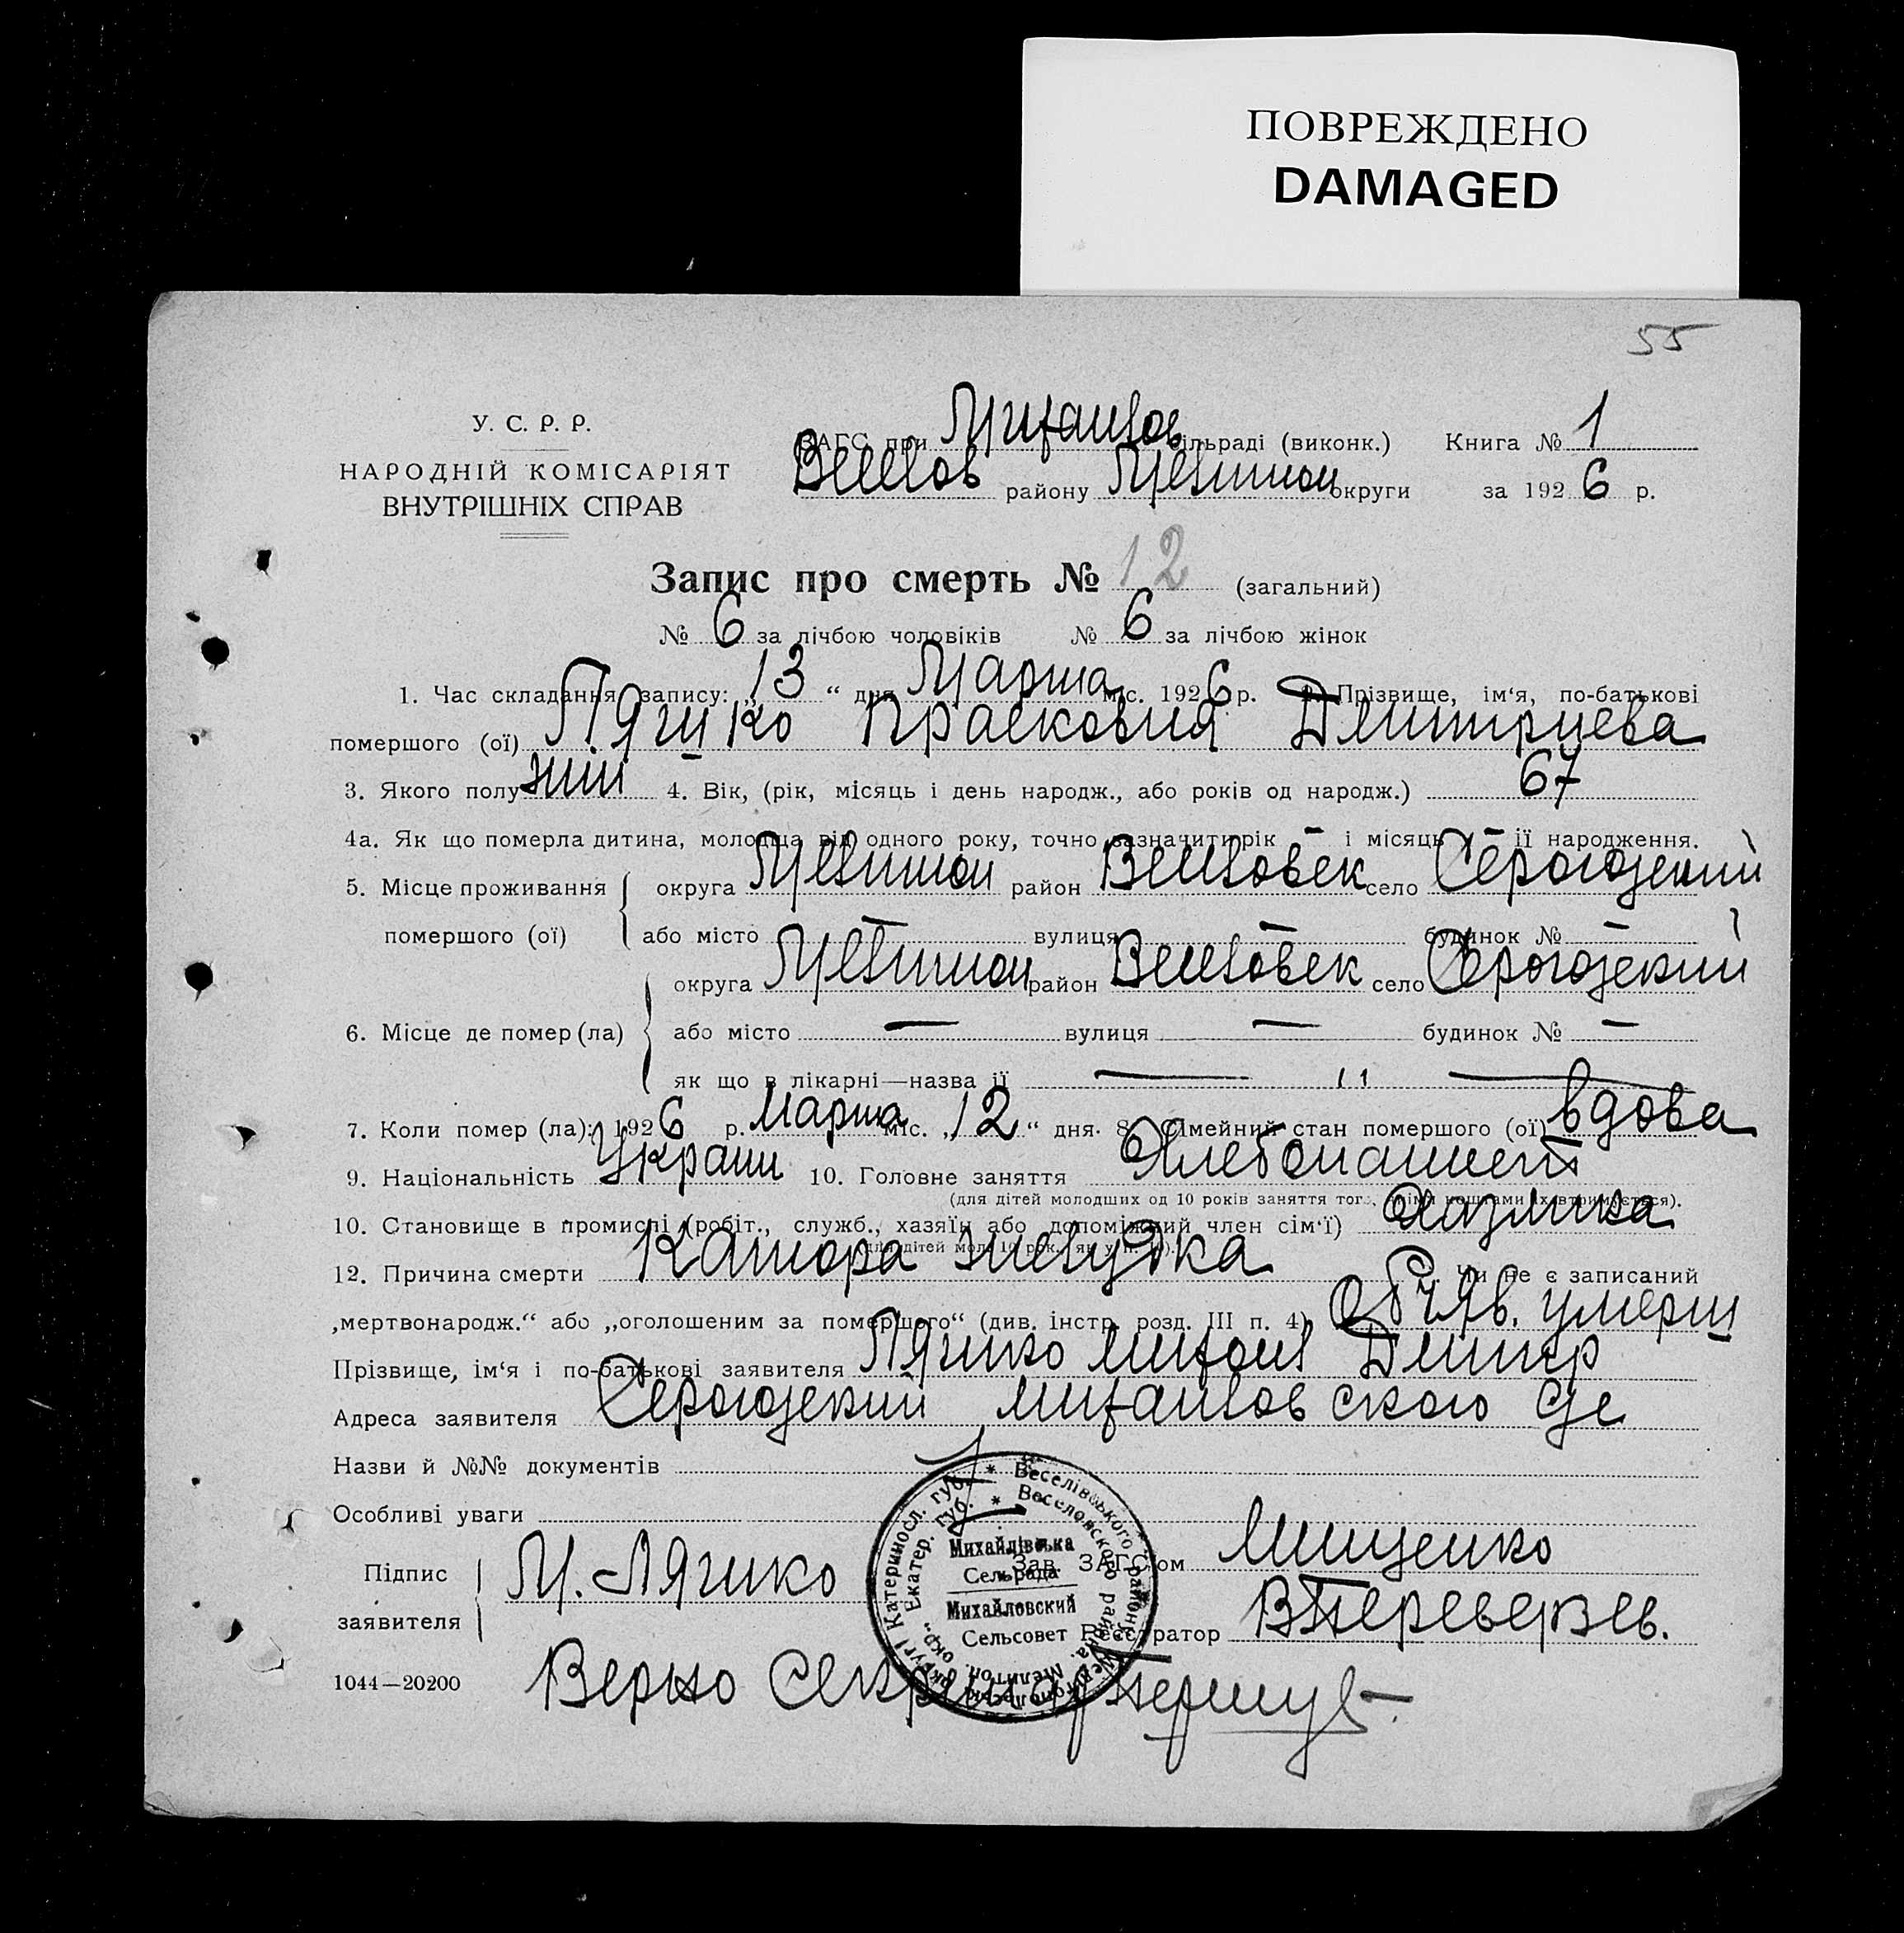 ПОВРЕЖДЕНО
DAMAGED
55
У. С. Р. Р.
НАРОДНІЙ КОМІСАРІЯТ
ВНУТРІШНІХ СПРАВ
ЗАГС при Михайлов сільраді (виконк.) Книга № 1
Веселов району Мелитоп округи за 1926 р.
Запис про смерть № 12 (загальний)
№ 6 за лічбою чоловіків № 6 за лічбою жінок
1. Час складання запису: „13“ дня Марта міс. 1926 р. 2. Прізвище, ім‘я, по-батькові
помершого (ої) Лягшко Прасковия Дмитриева
3. Якого полу жін 4. Вік, (рік, місяць і день народж., або років од народж.) 67
4а. Як що померла дитина, молодша від одного року, точно зазначити рік — і місяць — її народження.
5. Місце проживання округа Мелитоп район Веселовск село Серогозский
помершого (ої) або місто — вулиця — будинок № —
округа Мелитоп район Веселовск село Серогозский
6. Місце де помер (ла) або місто — вулиця — будинок № —
як що в лікарні—назва її —
7. Коли помер (ла): 1926 р. Марта міс. „12“ дня. 8. Сімейний стан помершого (ої) вдова
9. Національність Украин 10. Головне заняття Хлебопашест
(для дітей молодших од 10 років заняття того, чиїми коштами їх втримується).
10. Становище в промислі (робіт., служб., хазяїн або допоміжний член сім‘ї) Хазяика
12. Причина смерти Катара желудка Чи не є записаний
„мертвонародж.“ або „оголошеним за помершого“ (див. інстр. розд. III п. 4) Объяв. умерш
Прізвище, ім‘я і по-батькові заявителя Лягшко Михаил Дмитр
Адреса заявителя Серогозский Михайловского С/с
Назви й №№ документів
Особливі уваги
Підпис
заявителя М. Лягшко
Зав. ЗАГС‘ом Мищенко
Реєстратор В Переверзев.
Катериносл. губ. * Веселівського району Мелітопольськ. округи
Екатер. губ. * Веселовского района, Мелитоп. окр.
Михайлівська
Сельрада
Михайловский
Сельсовет
1044—20200
Верно Секретар